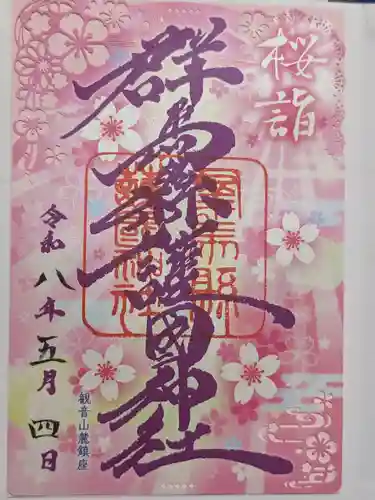 桜詣
群馬縣護國神社
群馬縣護國神社
令和八年五月四日
観音山麓鎮座